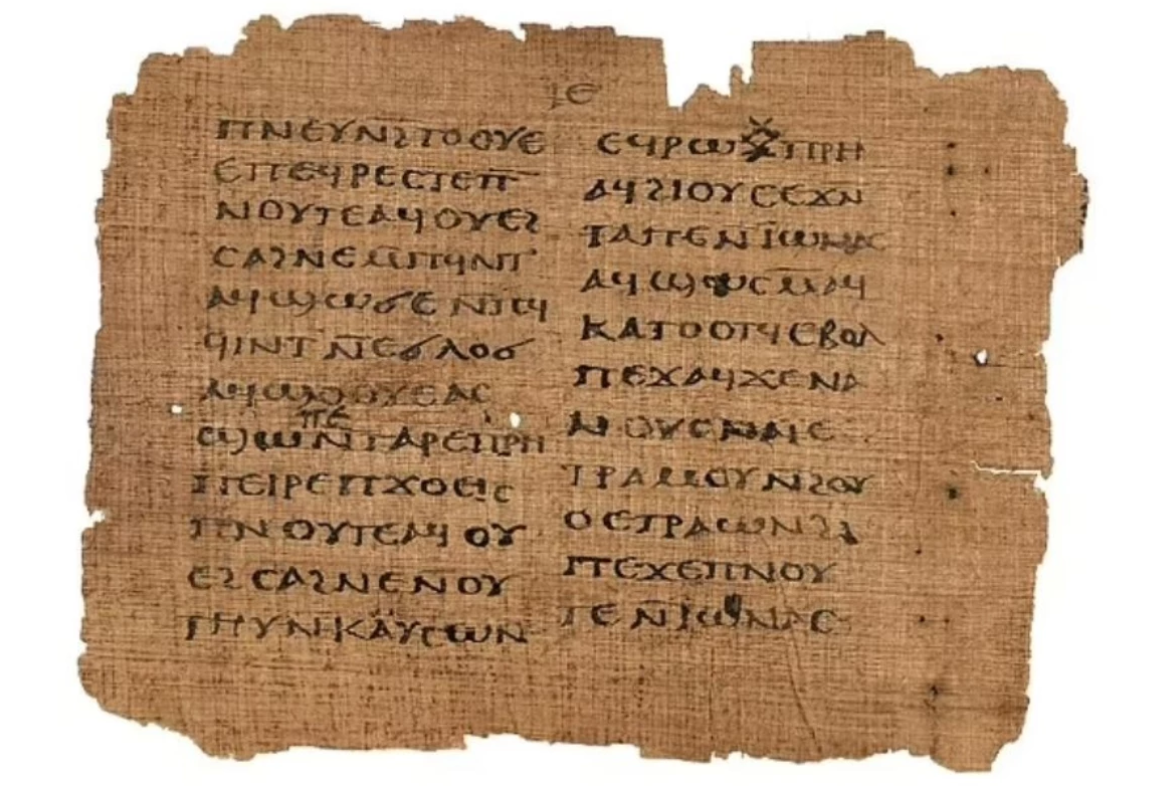 ⲓⲉ
ⲡⲛⲉⲩⲛϩⲧⲟⲟⲩⲉ
ⲉⲡⲉϥⲣⲉⲥⲧⲉⲡ
ⲛⲟⲩⲧⲉⲁϥⲟⲩⲉϩ
ⲥⲁϩⲛⲉⲙⲡϥⲛⲧ
ⲁϥϣⲱϭⲉⲛϭⲓ
ϥⲓⲛⲧⲛⲧⲉϭⲗⲟϭ
ⲁϥϣⲟⲟⲩⲉⲁⲥ
ϣⲱⲡⲉⲛⲧⲁⲣⲉⲡⲣⲏ
ⲡⲉⲓⲣⲉⲡϫⲟⲉⲓⲥ
ⲡⲛⲟⲩⲧⲉⲁϥⲟⲩ
ⲉϩⲥⲁϩⲛⲉⲛⲟⲩ
ⲧⲏⲩⲛⲕⲁⲩⲥⲱⲛ
ⲉϥⲣⲱϫⲡⲣⲏ
ⲁϥϩⲓⲟⲩⲥⲉϫⲛ
ⲧⲁⲡⲉⲛⲓⲱⲛⲁⲥ
ⲁϥϣⲱⲥⲙⲁϥ
ⲕⲁⲧⲟⲟⲧϥⲉⲃⲟⲗ
ⲡⲉϫⲁϥϫⲉⲛⲁ
ⲛⲟⲩⲥⲛⲁⲓⲉ
ⲧⲣⲁⲙⲟⲩⲛϩⲟⲩ
ⲟⲉⲧⲣⲁⲱⲛϩ
ⲡⲉϫⲉⲡⲛⲟⲩ
ⲧⲉⲛⲓⲱⲛⲁⲥ